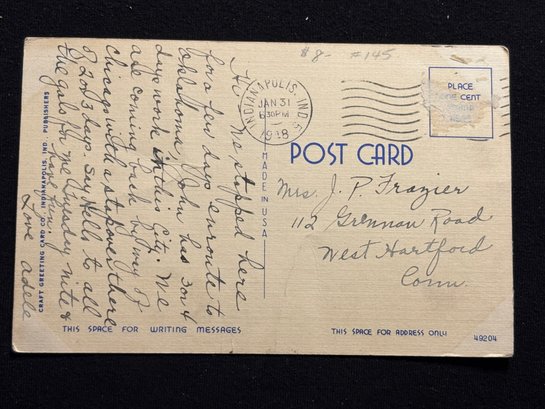 $8- #145
INDIANAPOLIS, IND. 5
JAN 31
6 30 PM
PLACE
ONE CENT
POST CARD
MADE IN U.S.A.
Hi- We stopped here
for a few days enroute to
Oklahoma. John has 3 or 4
days work in this City. We
are coming back by way of
Chicago with a stopover there
of 2 or 3 days. Say Hello to all
the gals for me Tuesday nite &
Love Adele
Mrs. J. P. Frazier
112 Grennan Road
West Hartford
Conn.
CRAFT GREETING CARD CO., INDIANAPOLIS, IND. PUBLISHERS
THIS SPACE FOR WRITING MESSAGES
THIS SPACE FOR ADDRESS ONLY
49204